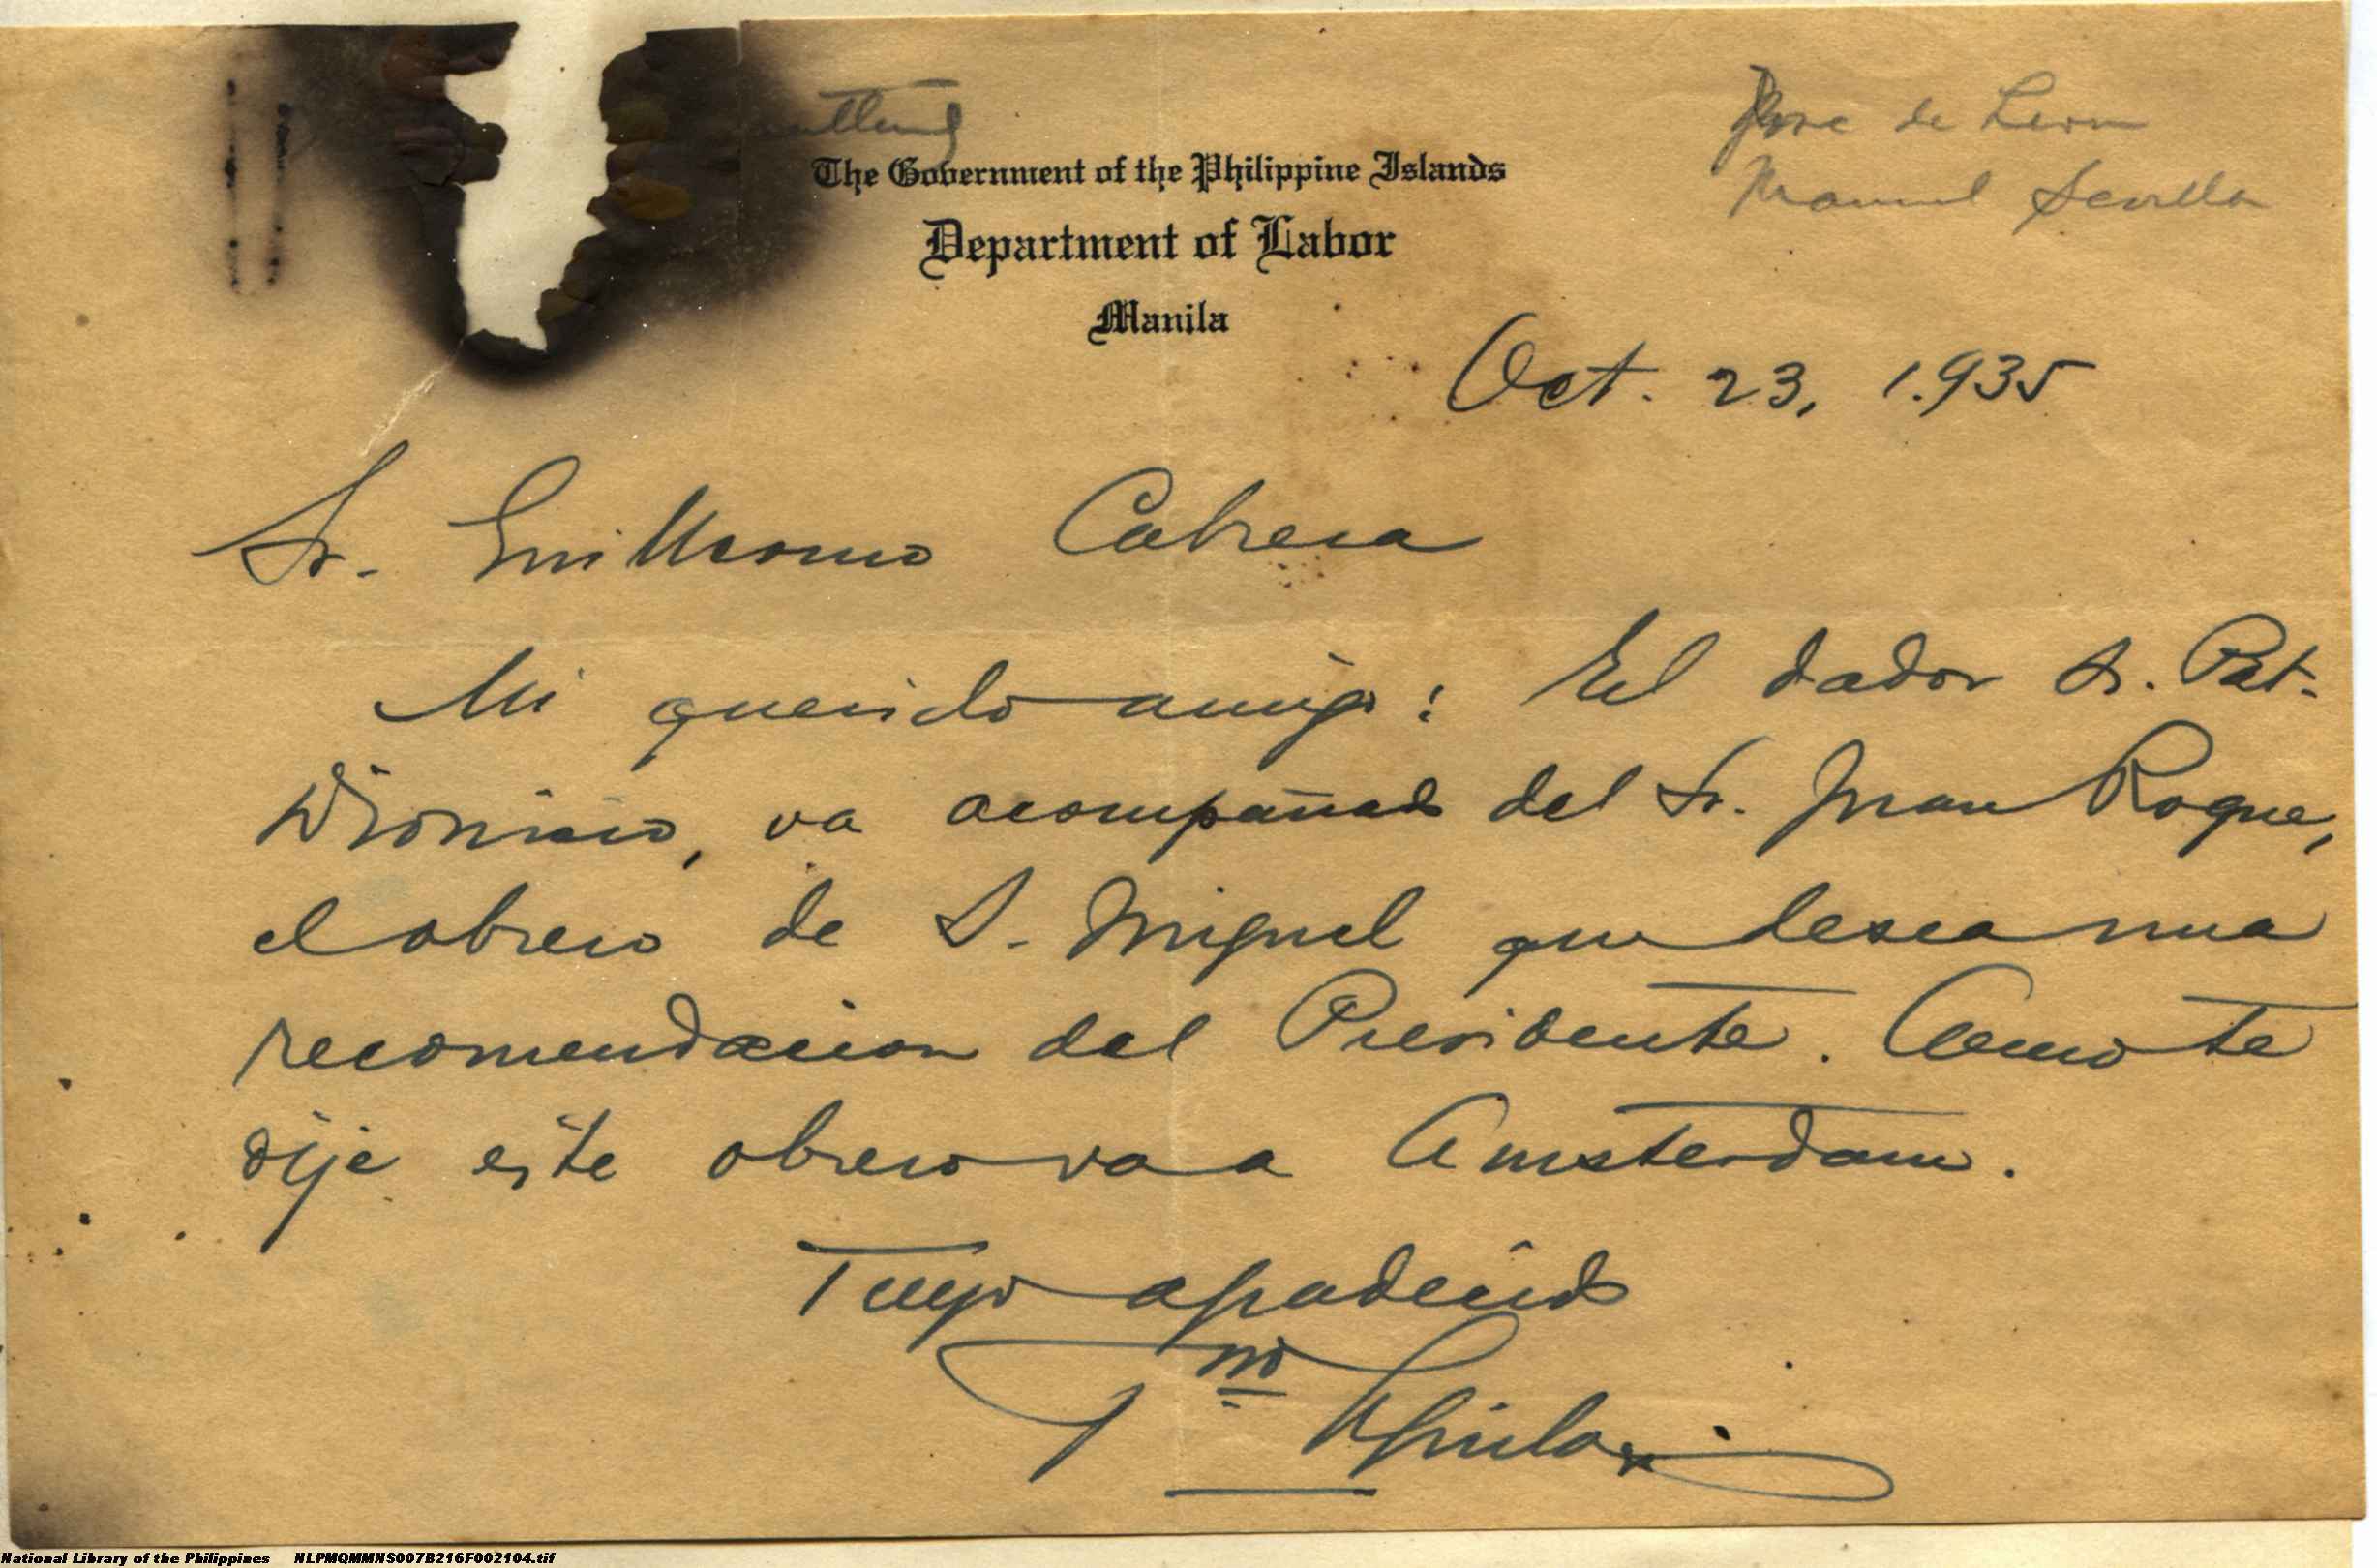 Jose de Leon
Manuel Sevilla
The Government of the Philippine Islands
Department of Labor
Manila
Oct. 23, 1.935
Sr. Guillermo Cabrera
Mi querido amigo: El dador Sr. Pat.
Dionisio, va acompañado del Sr. Juan Roque,
el obrero de S. Miguel que desea una
recomendacion del Presidente. Como te
dije este obrero va a Amsterdam.
Tuyo
National Library of the Philippines NLPMQMMNS007B216F002104.tif